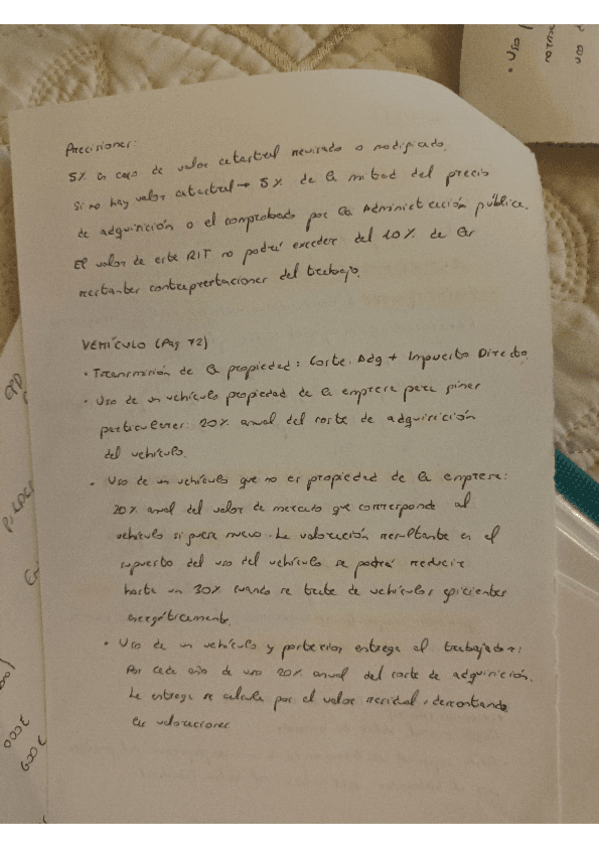 Precisiones:
5% en caso de valor catastral revisado o modificado.
Si no hay valor catastral → 5% de la mitad del precio
de adquisición o el comprobado por la Administración pública.
El valor de este RIT no podrá exceder del 10% de las
restantes contraprestaciones del trabajo.
VEHÍCULO (Pag 72)
• Transmisión de la propiedad: Coste Adq + Impuesto Directo.
• Uso de un vehículo propiedad de la empresa para fines
particulares: 20% anual del coste de adquisición
del vehículo.
• Uso de un vehículo que no es propiedad de la empresa:
20% anual del valor de mercado que corresponde al
vehículo si fuera nuevo. La valoración resultante en el
supuesto del uso del vehículo se podrá reducir
hasta un 30% cuando se trate de vehículos eficientes
energéticamente.
• Uso de un vehículo y posterior entrega al trabajador:
Por cada año de uso 20% anual del coste de adquisición.
La entrega se calcula por el valor residual, descontando
las valoraciones
• Uso
000€
600€